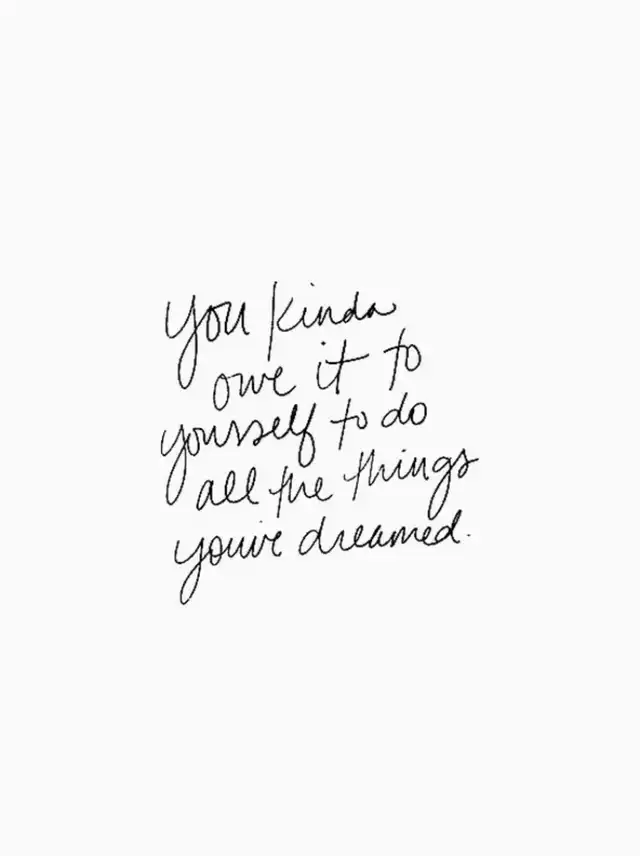 you kinda
owe it to
yourself to do
all the things
you've dreamed.